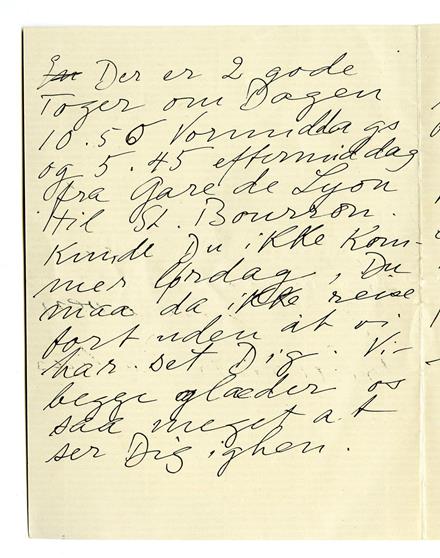 Der er 2 gode
Toger om Dagen
10.50 Vormiddags
og 5.45 eftermiddag
fra Gare de Lyon
til St. Bourron.
Kunde Du ikke Kom-
mer lördag, Du
maa da ikke reise
fort uden at vi
har set Dig. Vi
begge glæder os
saa meget at
ser Dig ighen.